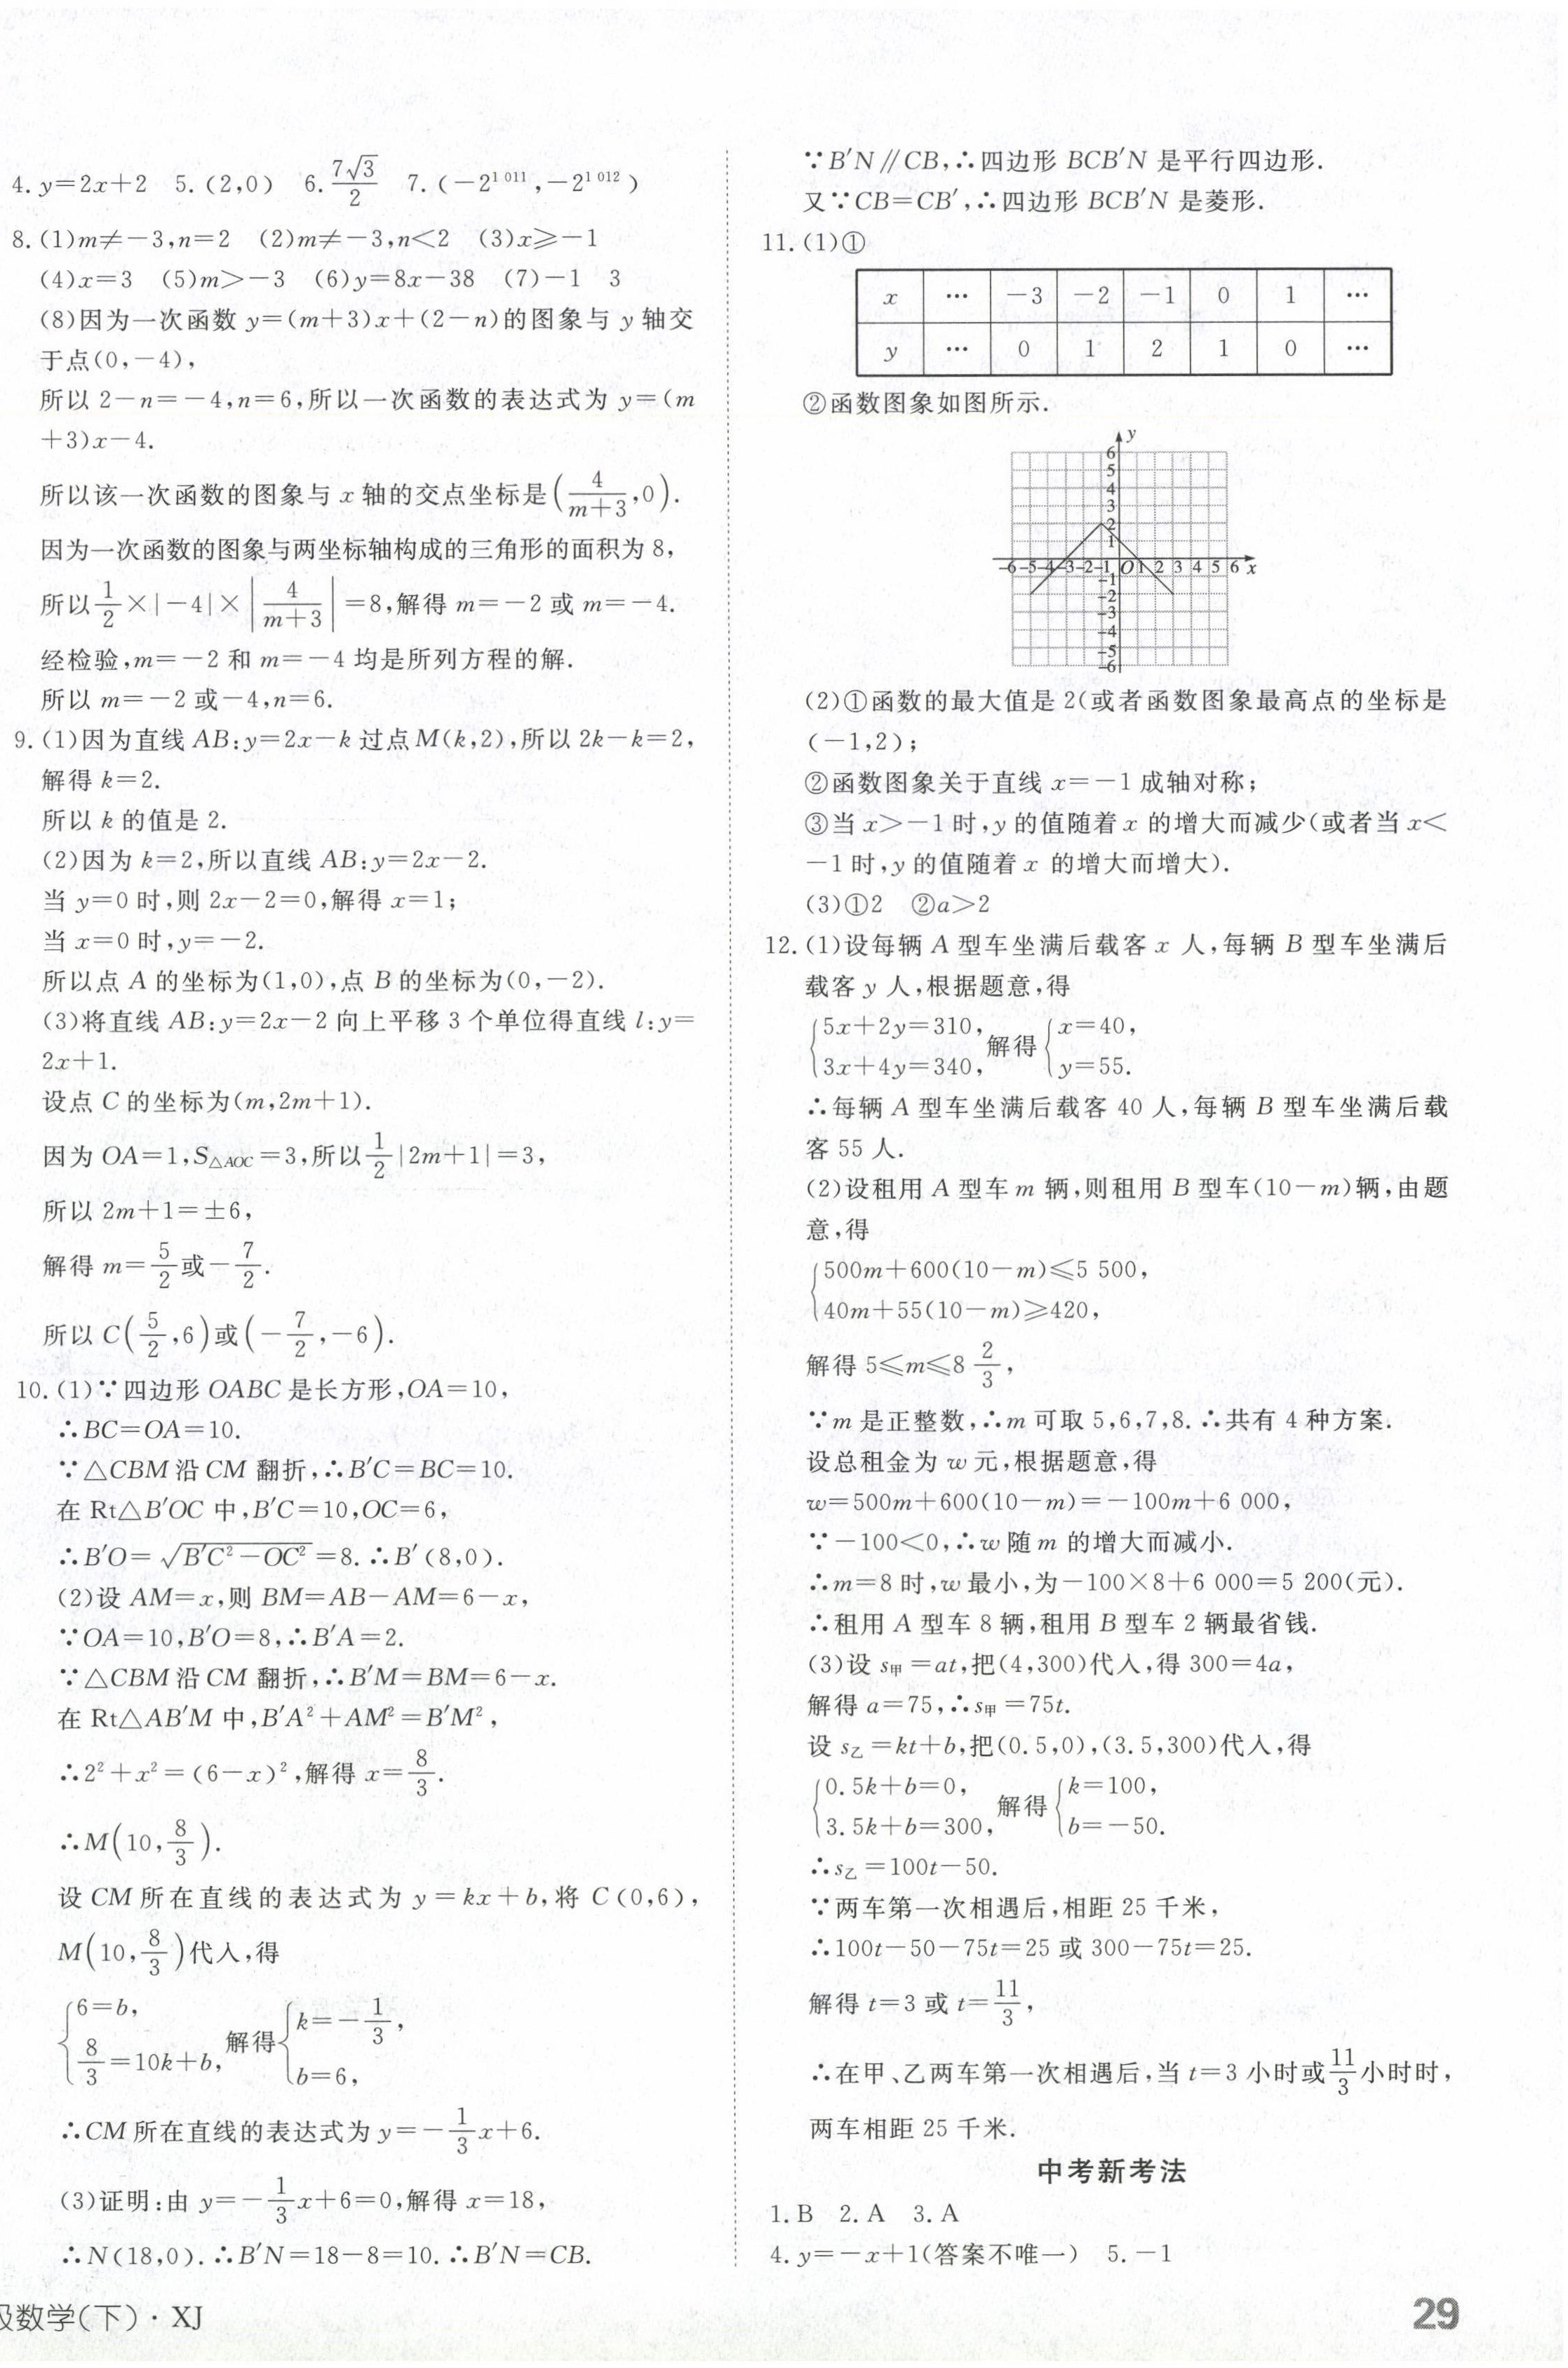 4. y=2x+2　5. (2,0)　6. 7√3/2　7. (-2^{1 011},-2^{1 012})
8. (1)m≠-3,n=2　(2)m≠-3,n<2　(3)x≥-1
(4)x=3　(5)m>-3　(6)y=8x-38　(7)-1　3
(8)因为一次函数 y=(m+3)x+(2-n)的图象与 y 轴交
于点(0,-4),
所以 2-n=-4,n=6,所以一次函数的表达式为 y=(m
+3)x-4.
所以该一次函数的图象与 x 轴的交点坐标是(4/(m+3),0).
因为一次函数的图象与两坐标轴构成的三角形的面积为 8,
所以1/2×|-4|×|4/(m+3)|=8,解得 m=-2 或 m=-4.
经检验,m=-2 和 m=-4 均是所列方程的解.
所以 m=-2 或-4,n=6.
9. (1)因为直线 AB:y=2x-k 过点 M(k,2),所以 2k-k=2,
解得 k=2.
所以 k 的值是 2.
(2)因为 k=2,所以直线 AB:y=2x-2.
当 y=0 时,则 2x-2=0,解得 x=1;
当 x=0 时,y=-2.
所以点 A 的坐标为(1,0),点 B 的坐标为(0,-2).
(3)将直线 AB:y=2x-2 向上平移 3 个单位得直线 l:y=
2x+1.
设点 C 的坐标为(m,2m+1).
因为 OA=1,S△AOC=3,所以1/2|2m+1|=3,
所以 2m+1=±6,
解得 m=5/2或-7/2.
所以 C(5/2,6)或(-7/2,-6).
10. (1)∵四边形 OABC 是长方形,OA=10,
∴BC=OA=10.
∵△CBM 沿 CM 翻折,∴B′C=BC=10.
在 Rt△B′OC 中,B′C=10,OC=6,
∴B′O=√(B′C²-OC²)=8. ∴B′(8,0).
(2)设 AM=x,则 BM=AB-AM=6-x,
∵OA=10,B′O=8,∴B′A=2.
∵△CBM 沿 CM 翻折,∴B′M=BM=6-x.
在 Rt△AB′M 中,B′A²+AM²=B′M²,
∴2²+x²=(6-x)²,解得 x=8/3.
∴M(10,8/3).
设 CM 所在直线的表达式为 y=kx+b,将 C(0,6),
M(10,8/3)代入,得
{6=b, 8/3=10k+b, 解得{k=-1/3, b=6,
∴CM 所在直线的表达式为 y=-1/3x+6.
(3)证明:由 y=-1/3x+6=0,解得 x=18,
∴N(18,0). ∴B′N=18-8=10. ∴B′N=CB.
∵B′N∥CB,∴四边形 BCB′N 是平行四边形.
又∵CB=CB′,∴四边形 BCB′N 是菱形.
11. (1)①
x … -3 -2 -1 0 1 …
y … 0 1 2 1 0 …
②函数图象如图所示.
y
6
5
4
3
2
1
-6-5-4-3-2-1 O 1 2 3 4 5 6 x
-1
-2
-3
-4
-5
-6
(2)①函数的最大值是 2(或者函数图象最高点的坐标是
(-1,2);
②函数图象关于直线 x=-1 成轴对称;
③当 x>-1 时,y 的值随着 x 的增大而减少(或者当 x<
-1 时,y 的值随着 x 的增大而增大).
(3)①2　②a>2
12. (1)设每辆 A 型车坐满后载客 x 人,每辆 B 型车坐满后
载客 y 人,根据题意,得
{5x+2y=310, 3x+4y=340, 解得{x=40, y=55.
∴每辆 A 型车坐满后载客 40 人,每辆 B 型车坐满后载
客 55 人.
(2)设租用 A 型车 m 辆,则租用 B 型车(10-m)辆,由题
意,得
{500m+600(10-m)≤5 500,
40m+55(10-m)≥420,
解得 5≤m≤8 2/3,
∵m 是正整数,∴m 可取 5,6,7,8. ∴共有 4 种方案.
设总租金为 w 元,根据题意,得
w=500m+600(10-m)=-100m+6 000,
∵-100<0,∴w 随 m 的增大而减小.
∴m=8 时,w 最小,为-100×8+6 000=5 200(元).
∴租用 A 型车 8 辆,租用 B 型车 2 辆最省钱.
(3)设 s甲=at,把(4,300)代入,得 300=4a,
解得 a=75,∴s甲=75t.
设 s乙=kt+b,把(0.5,0),(3.5,300)代入,得
{0.5k+b=0, 3.5k+b=300, 解得{k=100, b=-50.
∴s乙=100t-50.
∵两车第一次相遇后,相距 25 千米,
∴100t-50-75t=25 或 300-75t=25.
解得 t=3 或 t=11/3,
∴在甲、乙两车第一次相遇后,当 t=3 小时或11/3小时时,
两车相距 25 千米.
中考新考法
1. B　2. A　3. A
4. y=-x+1(答案不唯一)　5. -1
级数学(下)·XJ
29